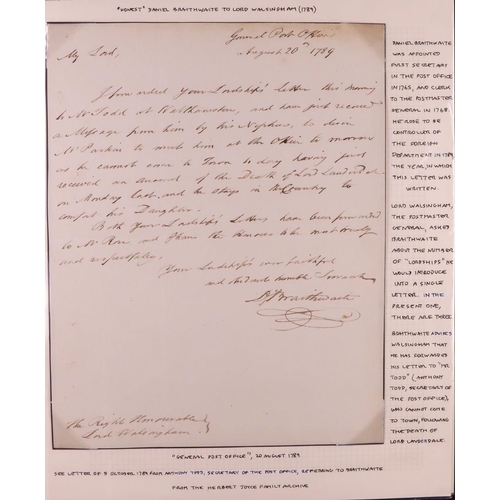 "HONEST" DANIEL BRAITHWAITE TO LORD WALSINGHAM (1789)
General Post Office
August 20th 1789
My Lord,
I forwarded your Lordships' Letter this morning
to Mr Todd at Walthamstow, and have just received
a Message from him by his Nephew, to desire
Mr Parkin to meet him at the Office to morrow
as he cannot come to Town to day having just
received an account of the Death of Lord Lauderdale
on Monday last, and he stays in the Country to
comfort his Daughter.
Both your Lordship's Letters have been forwarded
to Mr and I have the Honour to be most truly
and respectfully,
Your Lordship's ever faithful
and obedient humble Servant
DBraithwaite
The Right Honourable
Lord Walsingham
DANIEL BRAITHWAITE
WAS APPOINTED
FIRST SECRETARY
IN THE POST OFFICE
IN 1765, AND CLERK
TO THE POSTMASTER
GENERAL IN 1768.
HE ROSE TO BE
CONTROLLER OF
THE FOREIGN
DEPARTMENT IN 1789,
THE YEAR, IN WHICH
THIS LETTER WAS
WRITTEN.
LORD WALSINGHAM,
THE POSTMASTER
GENERAL, ASKED
BRAITHWAITE
ABOUT THE NUMBER
OF "LORDSHIPS" HE
WOULD INTRODUCE
INTO A SINGLE
LETTER. IN THE
PRESENT ONE,
THERE ARE THREE.
BRAITHWAITE ADVISES
WALSINGHAM THAT
HE HAS FORWARDED
HIS LETTER TO "MR
TODD" (ANTHONY
TODD, SECRETARY OF
THE POST OFFICE),
WHO CANNOT COME
TO TOWN, FOLLOWING
THE DEATH OF
LORD LAUDERDALE.
"GENERAL POST OFFICE", 20 AUGUST 1789
SEE LETTER OF 5 OCTOBER 1789 FROM ANTHONY TODD, SECRETARY OF THE POST OFFICE, REFERRING TO BRAITHWAITE
FROM THE HERBERT JOYCE FAMILY ARCHIVE